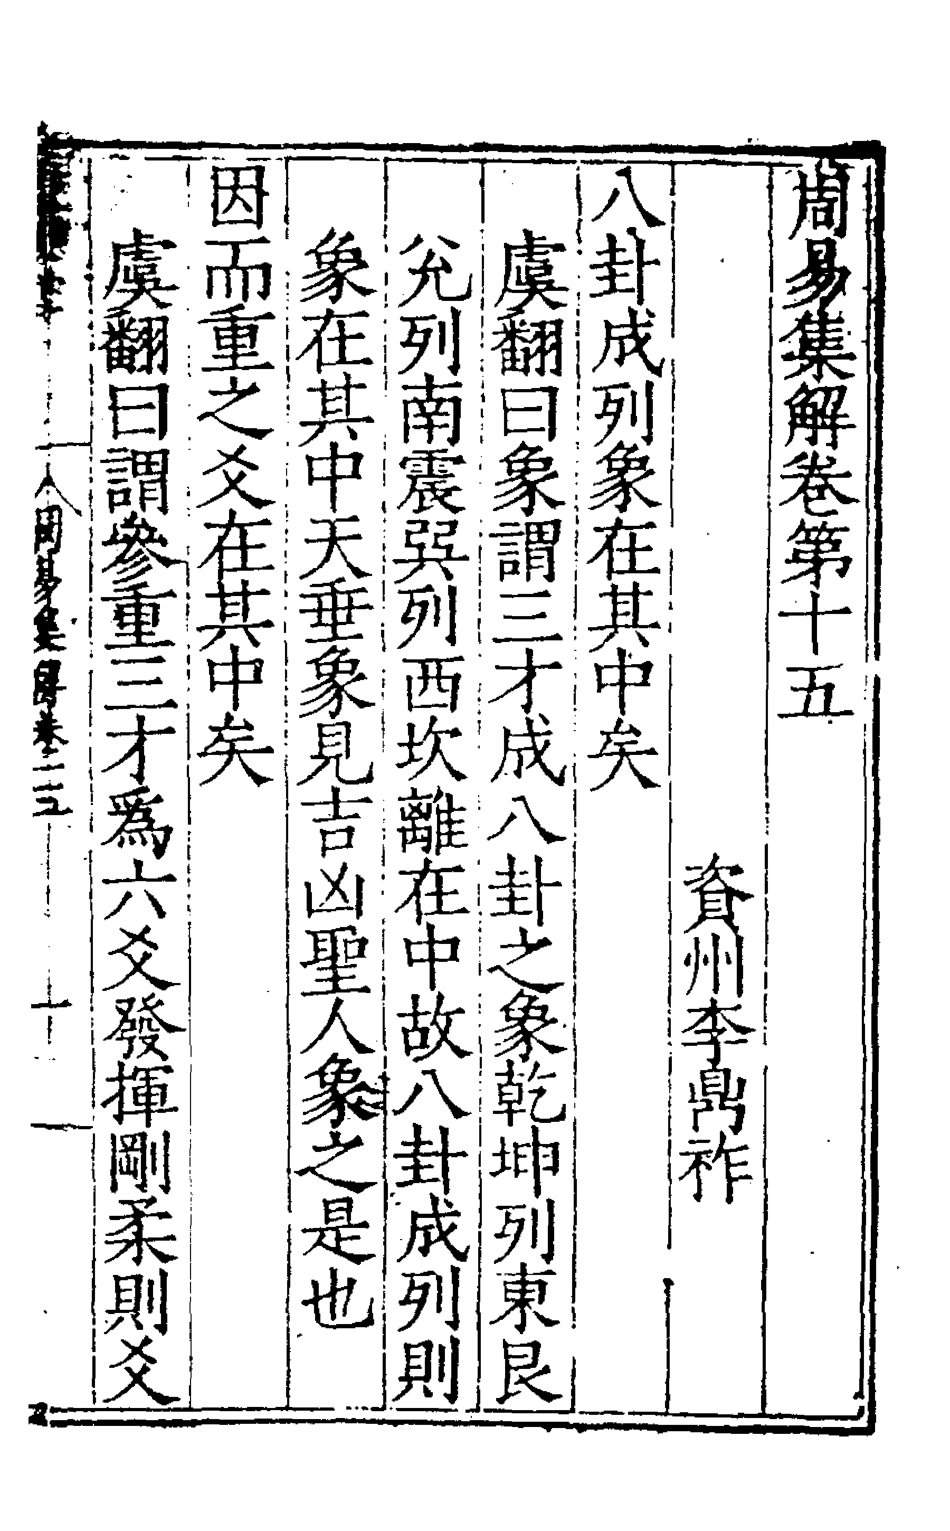 周易集解卷第十五
資州李鼎祚
八卦成列象在其中矣
虞翻曰象謂三才成八卦之象乾坤列東艮
兊列南震巽列西坎離在中故八卦成列則
象在其中天垂象見吉凶聖人象之是也
因而重之爻在其中矣
虞翻曰謂參重三才爲六爻發揮剛柔則爻
周易集解卷十五